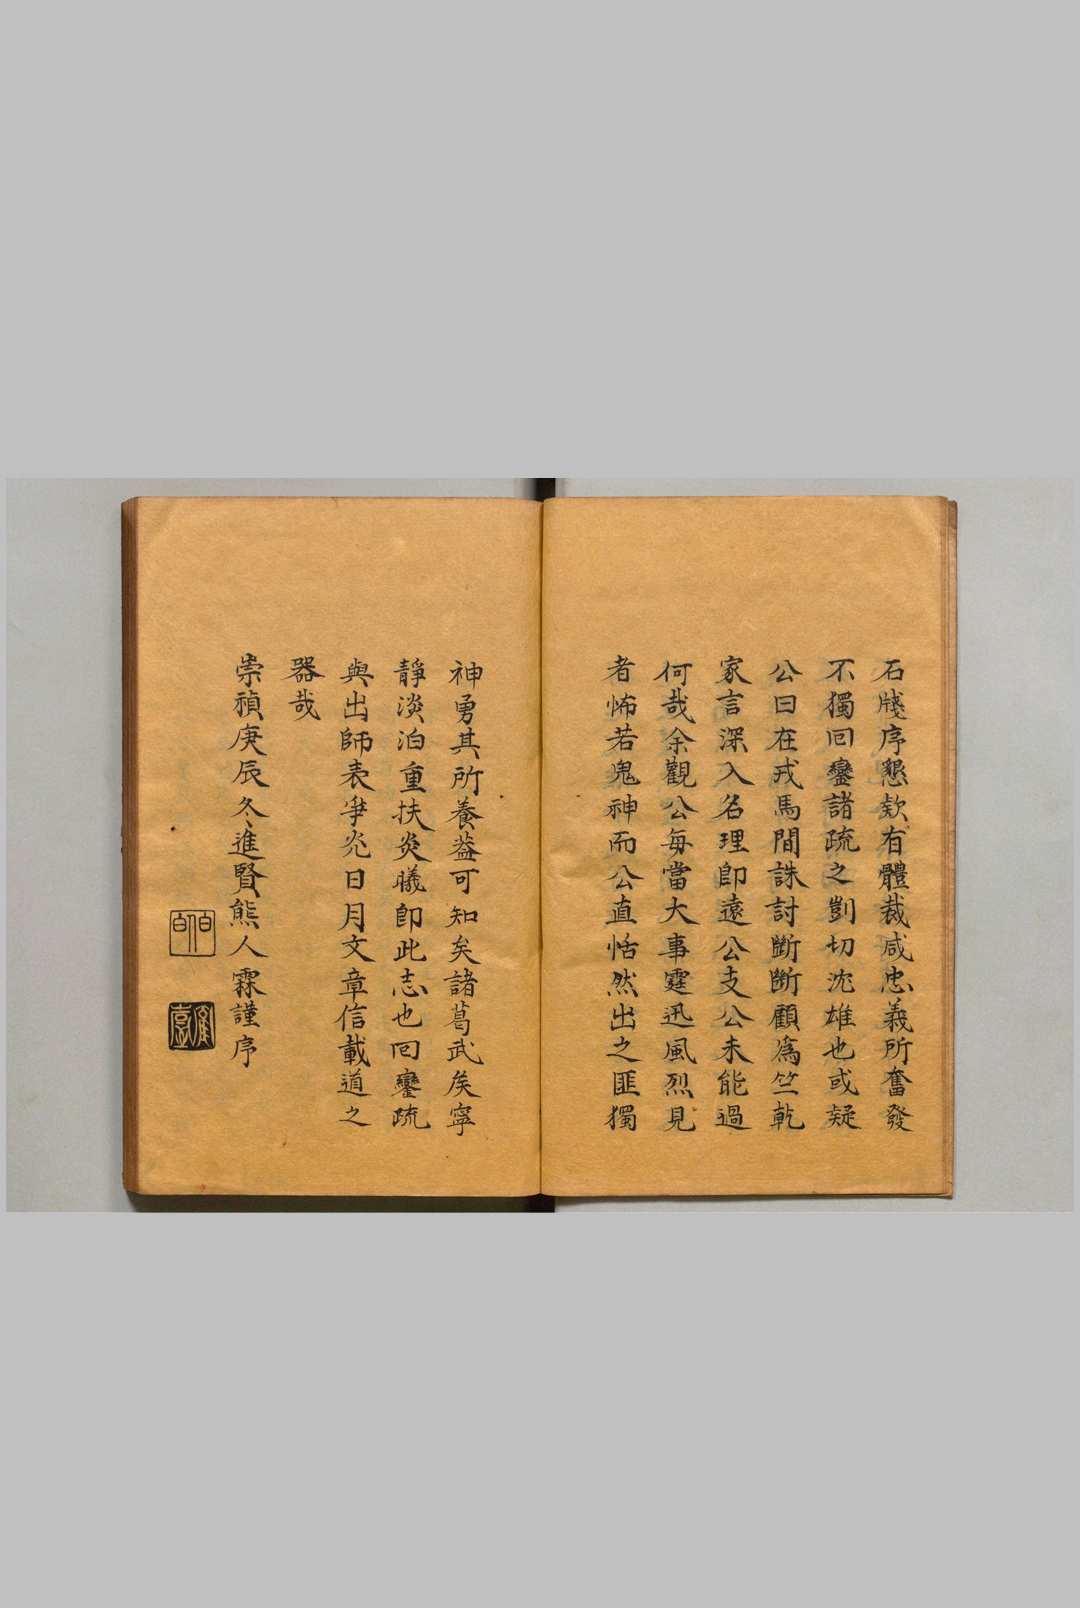 石牋序懇欵有體裁咸忠義所奮發
不獨回鑾諸疏之剴切沈雄也或疑
公日在戎馬間誅討斷斷顧爲竺乾
家言深入名理即遠公支公未能過
何哉余觀公每當大事霆迅風烈見
者怖若鬼神而公直恬然出之匪獨
神勇其所養葢可知矣諸葛武矦寧
靜淡泊重扶炎曦即此志也回鑾疏
與出師表爭炎日月文章信載道之
器哉
崇禎庚辰冬進賢熊人霖謹序